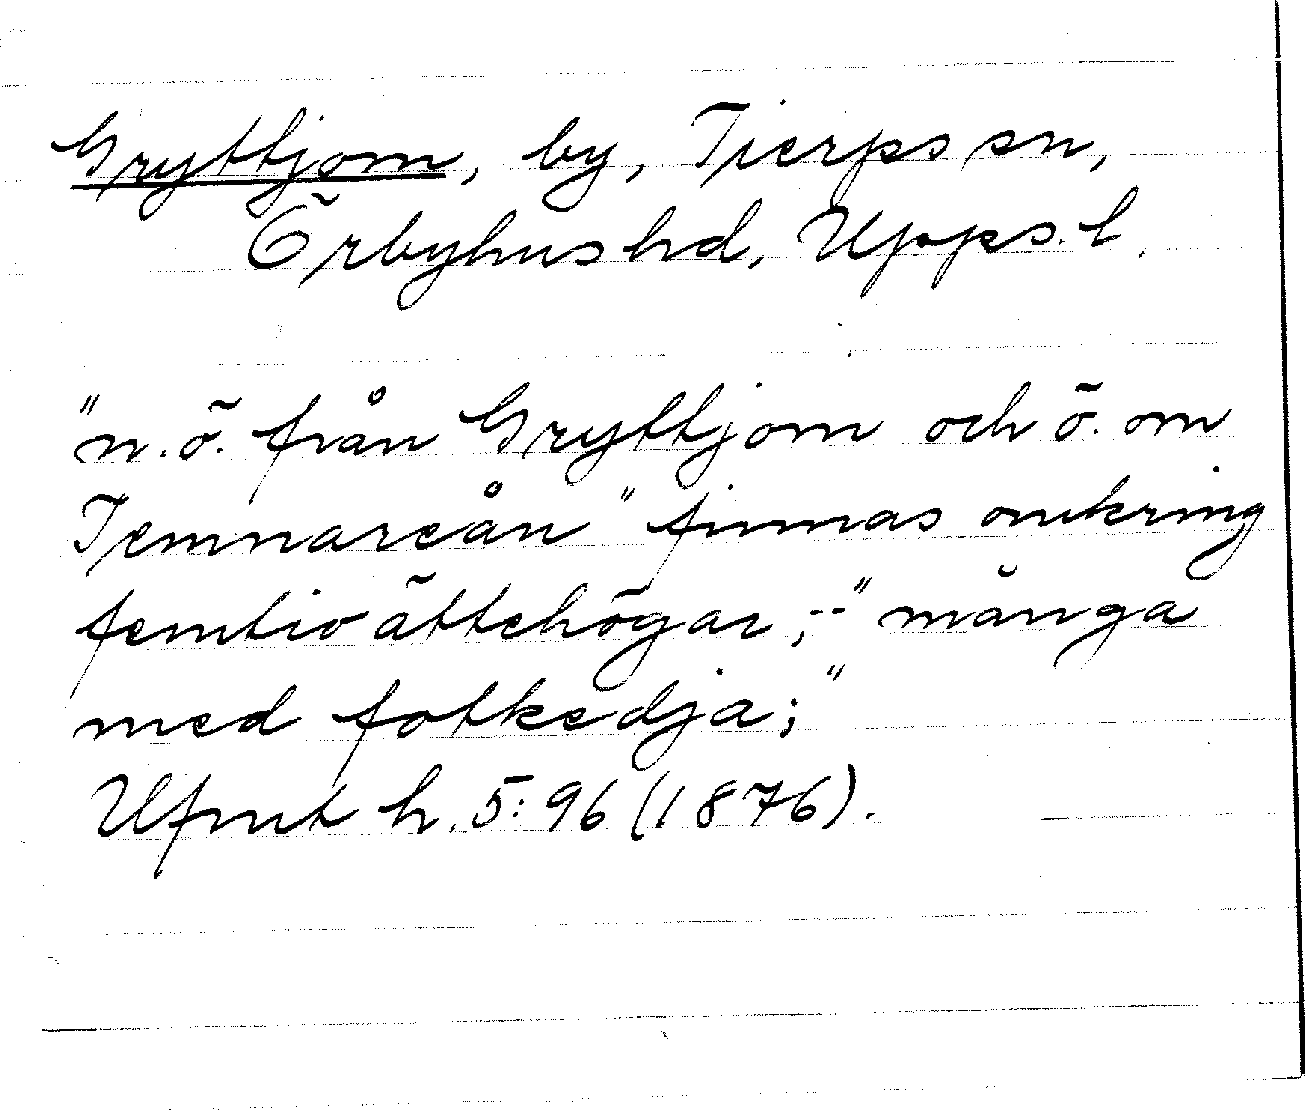 Gryttjom, by, Tierps sn,
Örbyhus hd, Upps. l.
"n.ö. från Gryttjom och ö. om
Temnareån" finnas omkring
femtio ättehögar, -- "många
med fotkedja;"
Ufmt h. 5: 96 (1876).